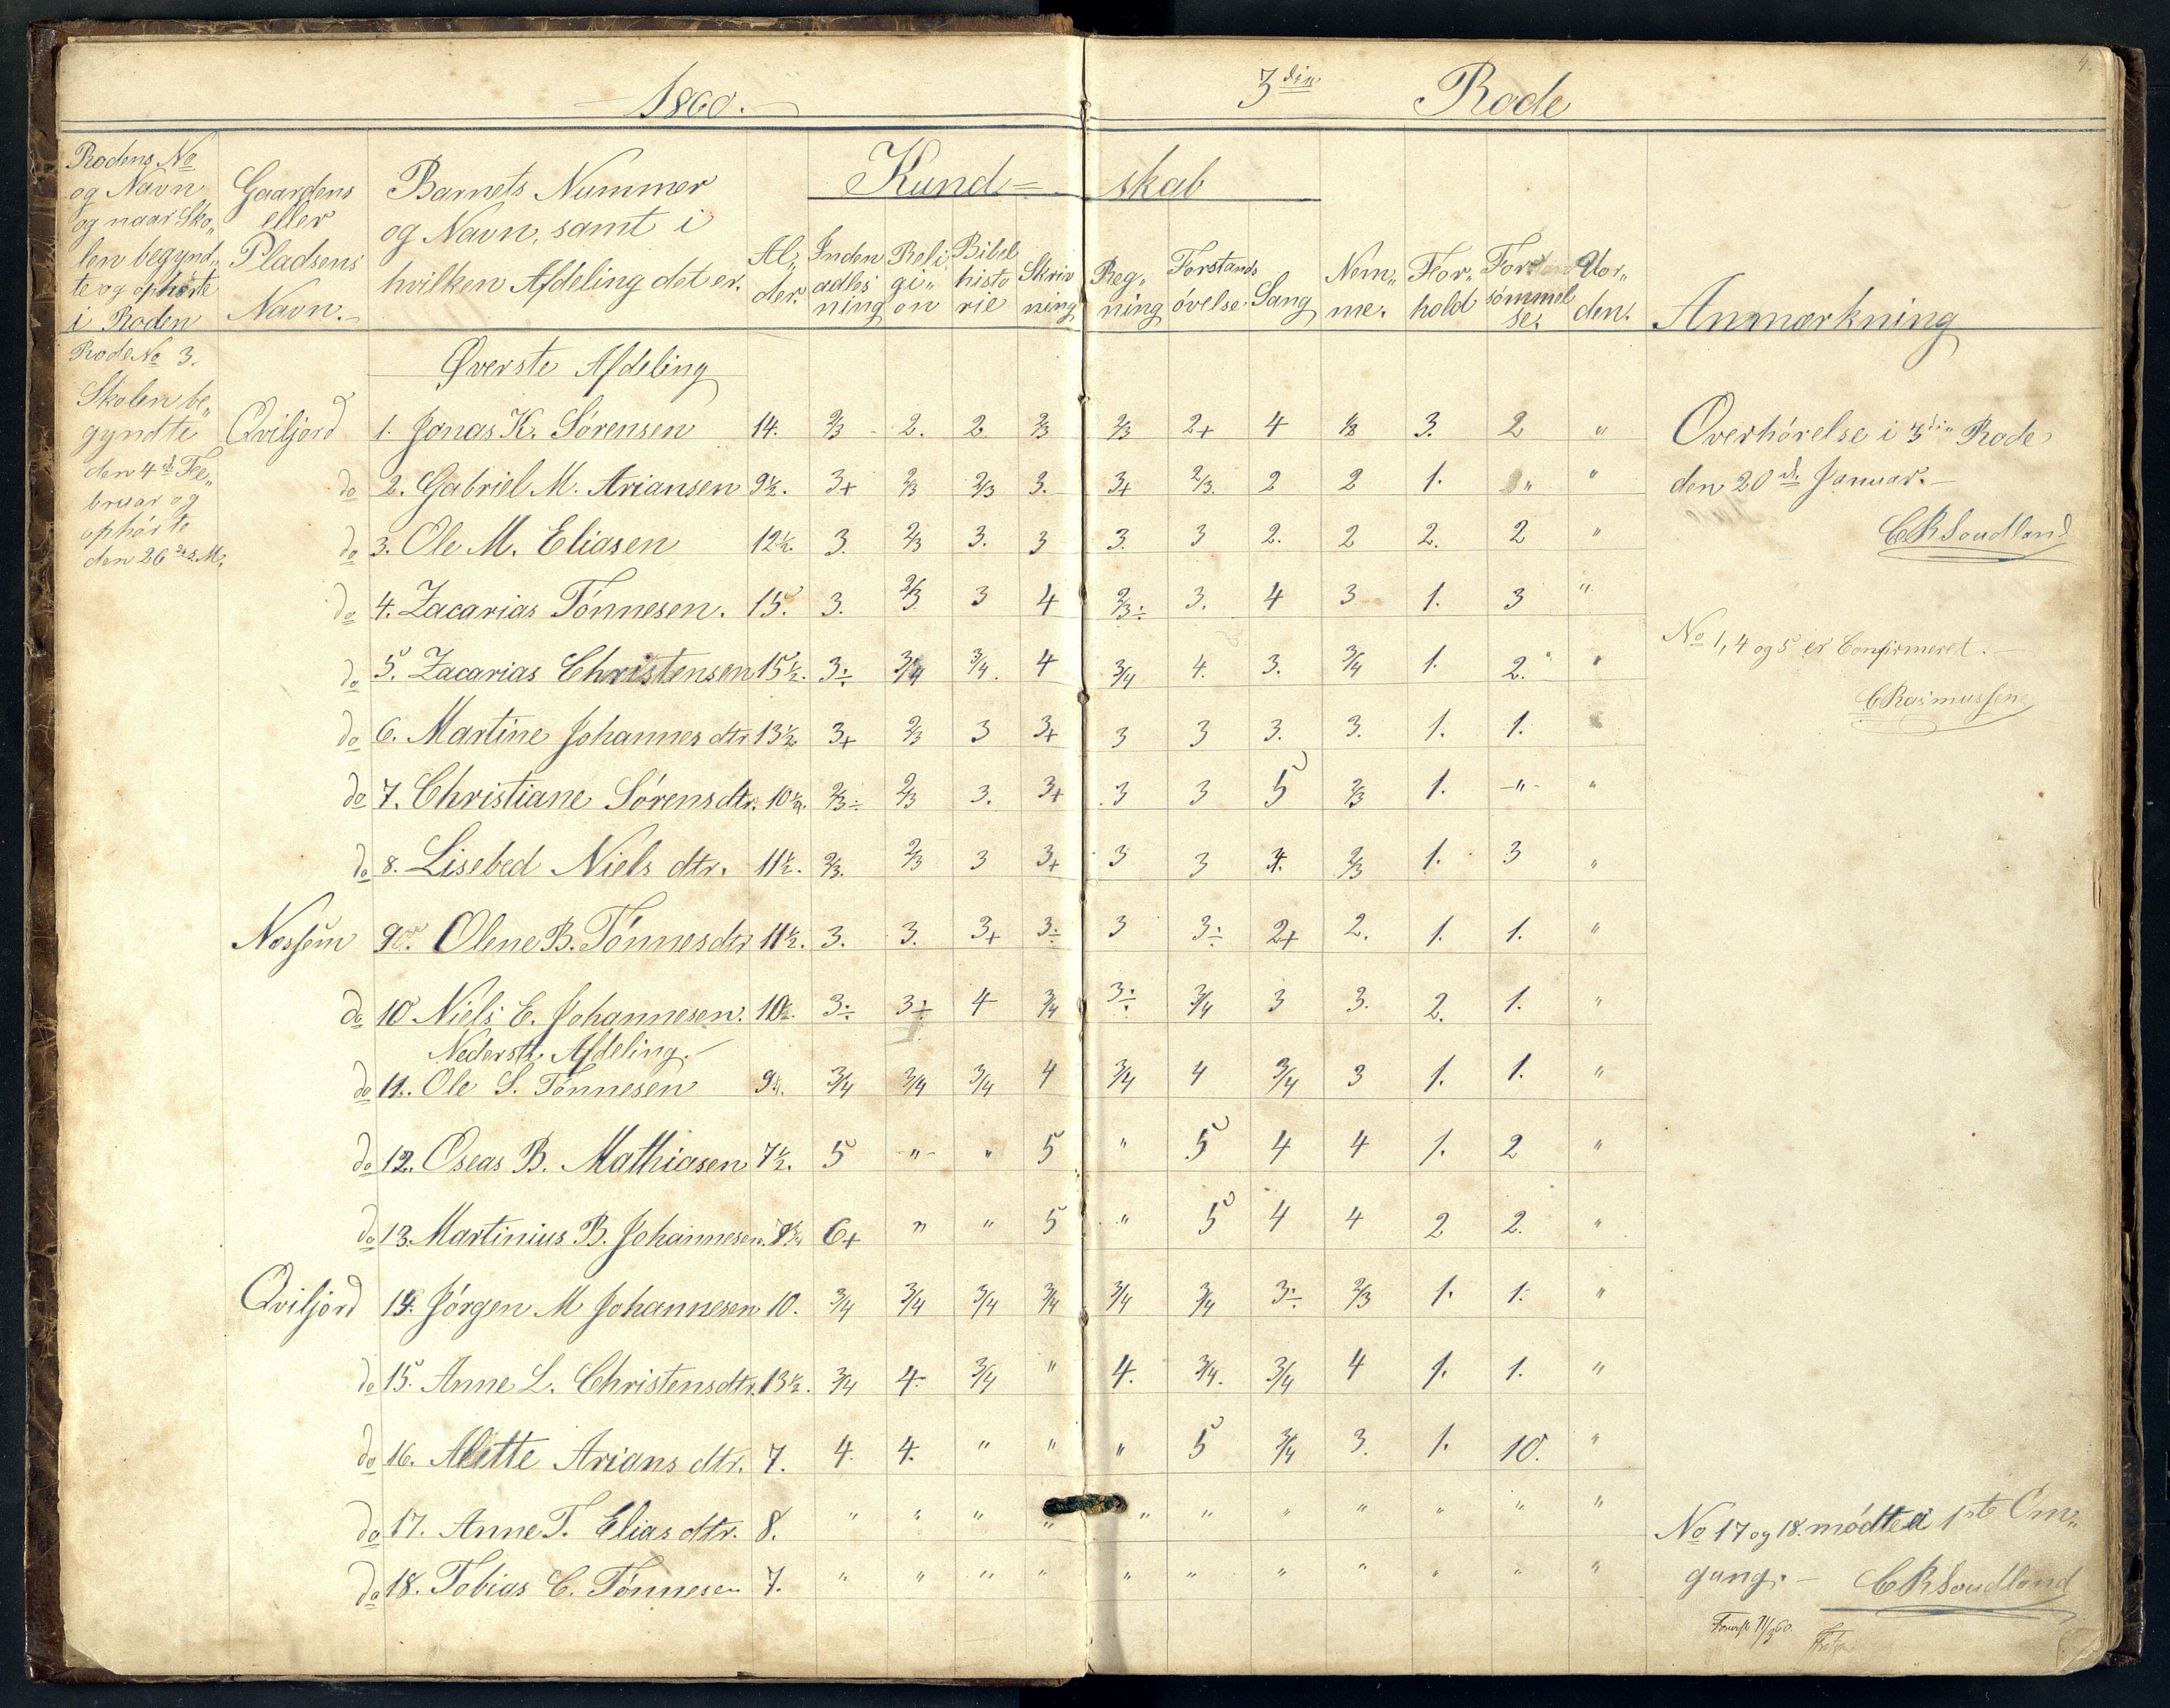 1860.
3die Rode
4.
Rodens No og Navn og naar Sko„ len begynd„ te og ophørte i Roden
Gaardens eller Pladsens Navn.
Barnets Nummer og Navn, samt i hvilken Afdeling det er.
Al„ der.
Kund= skab
Inden adlæs ning
Reli gi„ on
Bibel histo rie
Skriv ning
Reg„ ning
Forstands øvelse
Sang
Nem„ me.
For„ hold
For sømmel se.
Uor„ den.
Anmærkning
Rode No 3.
Skolen be„
gyndte
den 4de Fe„
bruar og
ophørte
den 26de s. M.
Øverste Afdeling
Qviljord 1. Jonas K. Sørensen 14. 2/3 2. 2. 2/3 2/3 2+ 4 1/3 3. 2 „
do 2. Gabriel M. Ariansen 9½. 3+ 2/3 2/3 3. 3+ 2/3. 2 2 1. „ „
do 3. Ole M. Eliasen 12½. 3. 2/3 3. 3 3. 3 2. 2 2. 2 „
do 4. Zacarias Tønnesen. 15. 3. 2/3 3 4 2/3÷ 3. 4 3 1. 3 „
do 5. Zacarias Christensen 15½. 3÷ 3/4 3/4. 4 3/4 4. 3. 3/4 1. 2. „
do 6. Martine Johannes dtr 13½ 3+ 2/3 3 3+ 3 3 3. 3. 1. 1.
do 7. Christiane Sørens dtr. 10½. 2/3÷ 2/3 3. 3+ 3 3 5 2/3 1. -„- „
do 8. Lisebed Niels dtr. 11½. 2/3. 2/3 3 3+ 3 3 4. 2/3 1. 3 „
Næssum 9. Olene B. Tønnesdtr 11½. 3. 3. 3+ 3÷ 3 3÷ 2+ 2. 1. 1. „
do 10 Niels E. Johannesen. 10½. 3÷ 3÷ 4 3/4 3÷ 3/4 3 3. 2. 1. „
Nederste Afdeling.
do 11. Ole S. Tønnesen 9½. 3/4 3/4 3/4 4 3/4 4 3/4 3 1. 1. „
do 12. Oseas B. Mathiasen 7½. 5 „ „ 5 „ 5 4 4 1. 2 „
do 13. Martinius B. Johannesen. 6+ „ „ 5 „ 5 4 4 2 2. „
Qviljord 14. Jørgen M Johannesen 10. 3/4 3/4 3/4 3/4 3/4 3/4 3÷ 2/3 1. 1. „
do 15. Anne L. Christensdtr. 13½. 3/4 4. 3/4 „ 4. 3/4. 3/4 4 1. 1. „
do 16. Alette Arians dtr. 7. 4. 4. „ „ „ 5 3/4 3. 1. 10. „
do 17. Anne T. Elias dtr. 8. „ „ „ „ „ „ „ „ „ „ „
do 18. Tobias C. Tønnesen 7. „ „ „ „ „ „ „ „ „ „ „
Overhørelse i 3die Rode
den 20de Januar.
C R Soudland
No 1, 4 og 5 er Confirmeret.
C Rasmussen
No 17 og 18. mødte ei 1ste Om„
gang.
C R Soudland